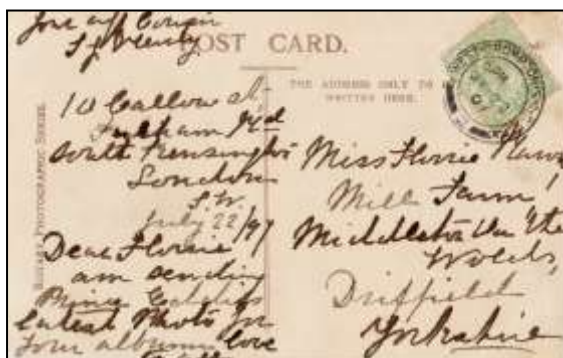 Your aff Cousin
POST CARD.
THE ADDRESS ONLY TO BE
WRITTEN HERE.
ROTARY PHOTOGRAPHIC SERIES.
10 Callow St
Fulham Rd
South Kensington
London
S.W.
July 22/07
Dear Florrie
am sending
Prince
latest Photo for
your album love
Miss Florrie
Mill Farm
Middleton on the
Wolds,
Driffield
Yorkshire